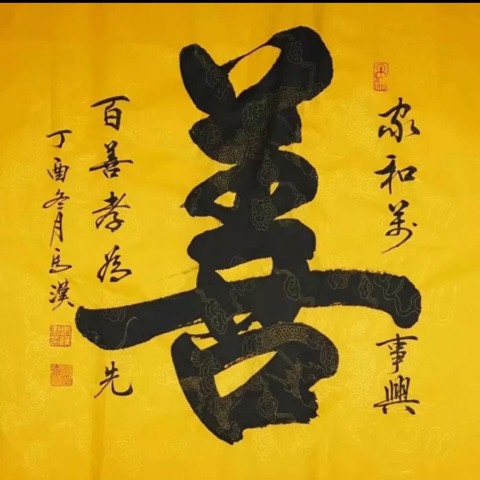 家和萬事興
善
百善孝為先
丁酉冬月馬漢